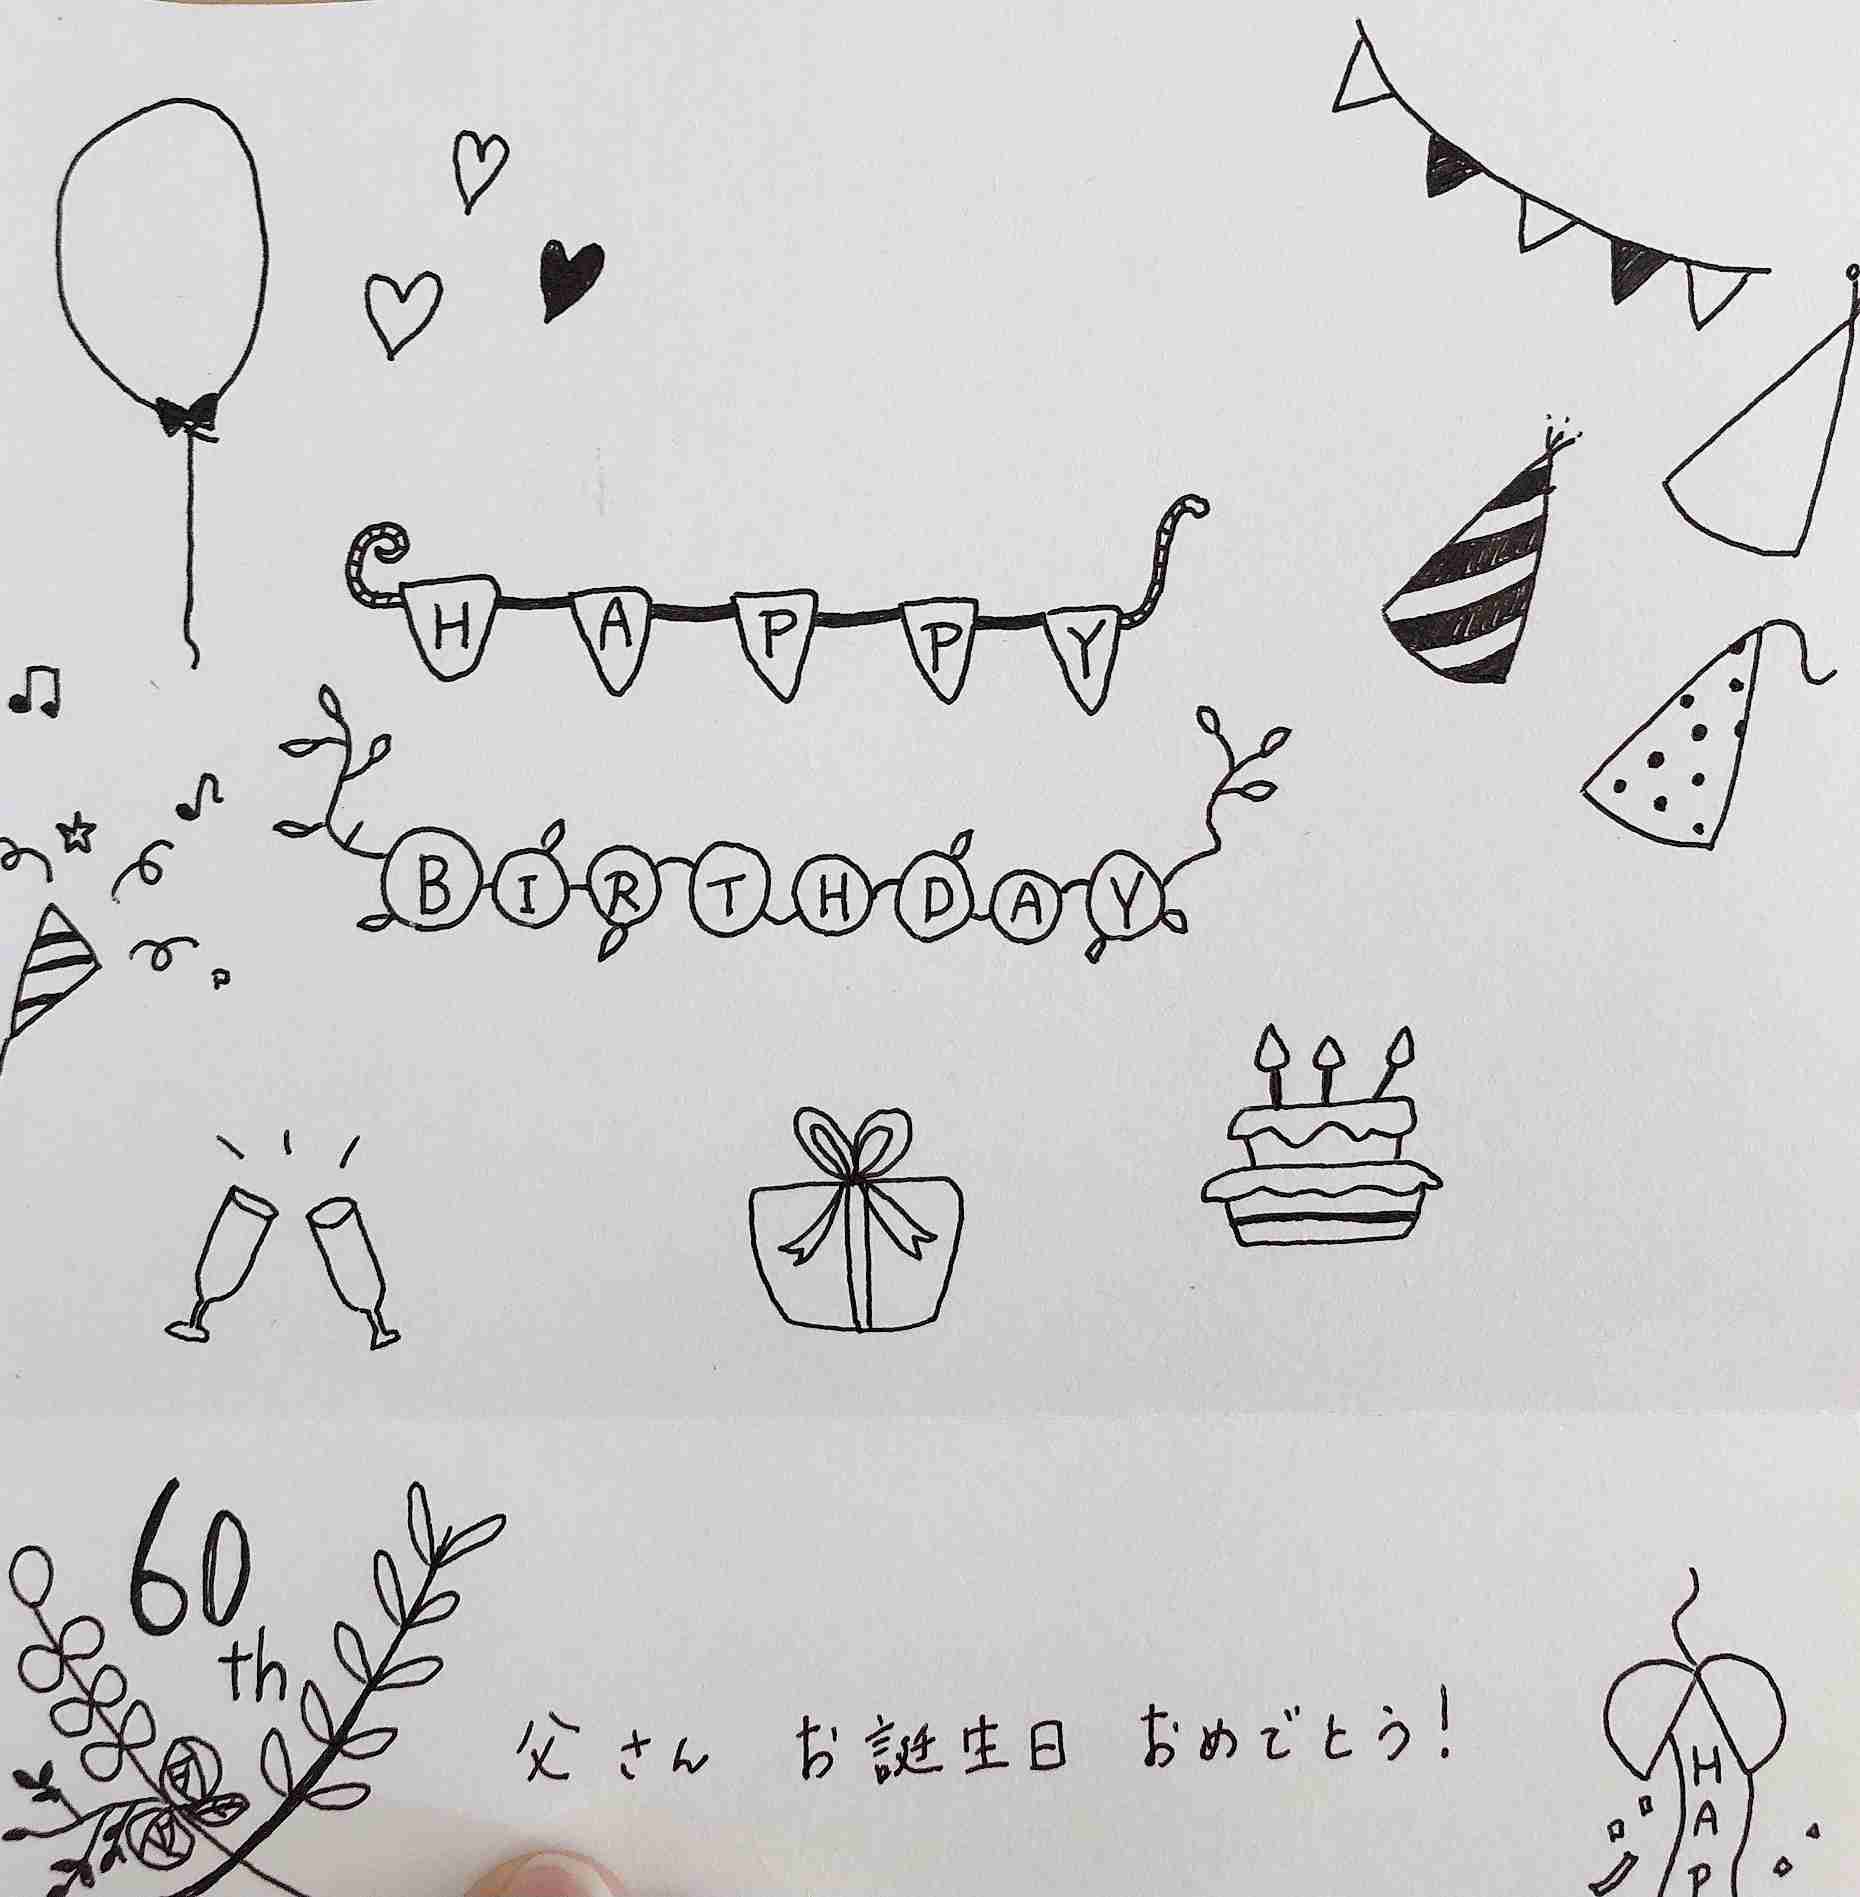 HAPPY
BIRTHDAY
60th
父さん お誕生日 おめでとう!
HAP